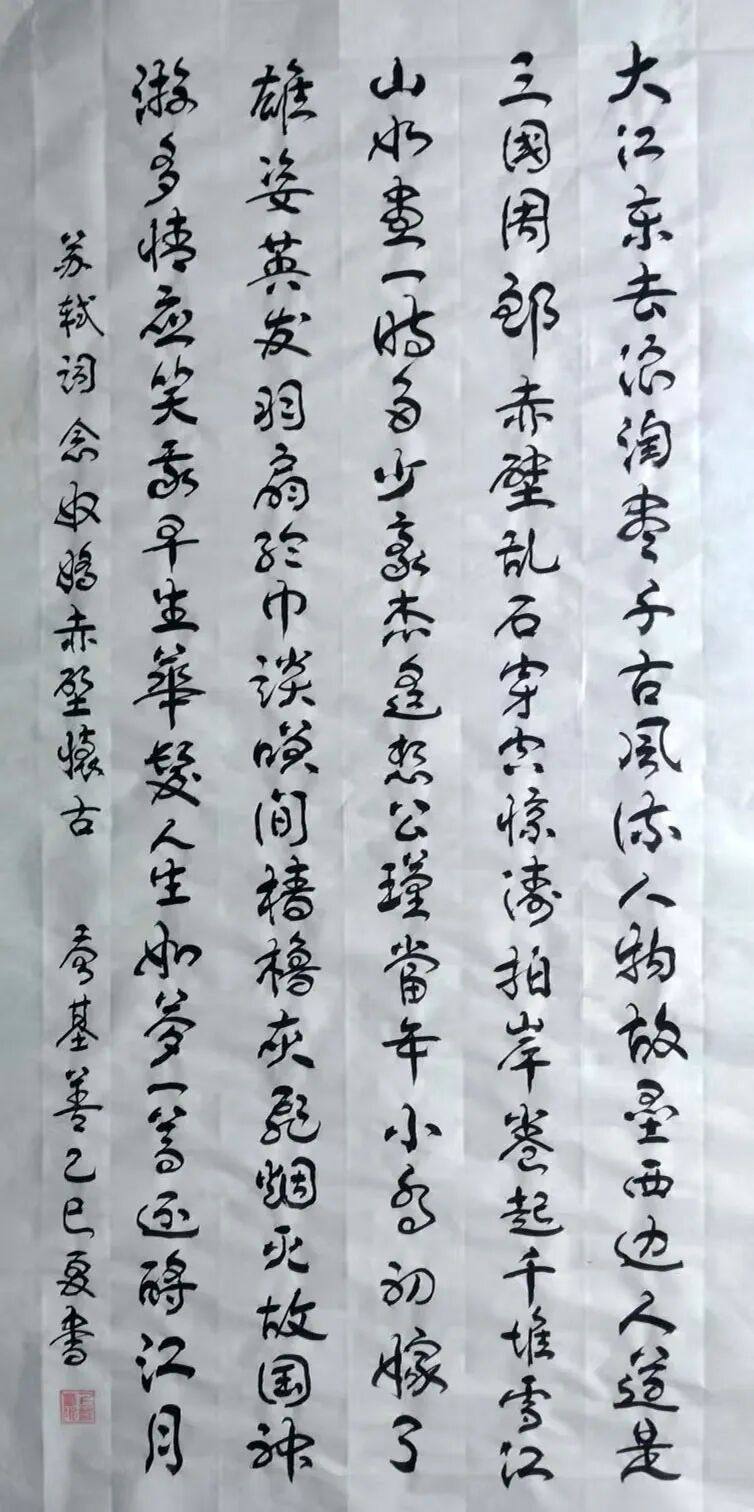 大江东去浪淘尽千古风流人物故垒西边人道是
三國周郎赤壁乱石穿空惊涛拍岸卷起千堆雪江
山如画一时多少豪杰遥想公瑾當年小乔初嫁了
雄姿英发羽扇纶巾談咲间樯橹灰飛烟灭故国神
游多情应笑我早生華髮人生如梦一尊还酹江月
苏轼词念奴嬌赤壁懷古 基善乙巳夏書